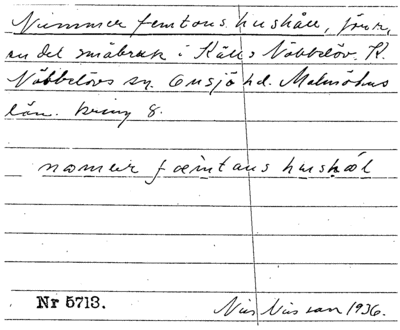 Nummer femtons huskåll, förut,
en del småbruk i Källs Nöbbelöv. K.
Nöbbelövs sn. Onsjö hd. Malmöhus
län. kring 8.
nomeir fæmtans huskål
Nr 5713.
Nils Nilsson 1936.